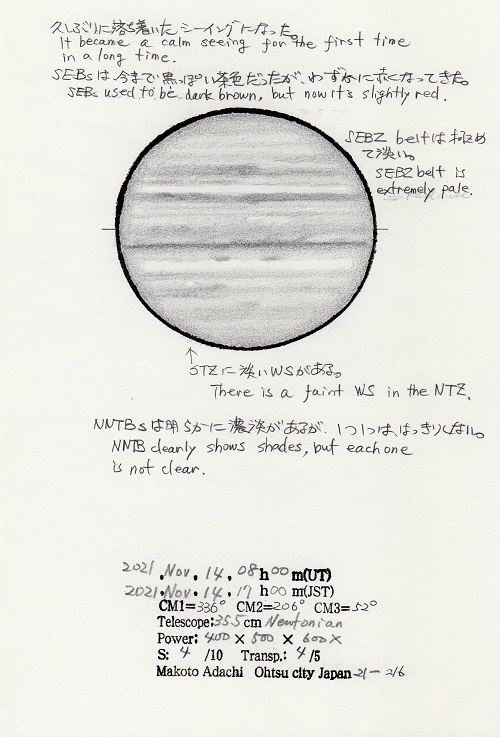 久しぶりに落ち着いたシーイングになった。
It became a calm seeing for the first time
in a long time.
SEBsは今まで黒っぽい茶色だったが、わずかに赤くなってきた。
SEBs used to be dark brown, but now it's slightly red.
SEBZ beltは極め
て淡い。
SEBZ belt is
extremely pale.
↑
STZに淡いWSがある。
There is a faint WS in the NTZ.
NNTBsは明らかに濃淡があるが、1つ1つは、はっきりしない。
NNTB clearly shows shades, but each one
is not clear.
2021.Nov.14.08h00m(UT)
2021.Nov.14.17h00m(JST)
CM1=336° CM2=206° CM3=52°
Telescope:35.5cm Newtonian
Power:400×500×600×
S: 4 /10 Transp.: 4/5
Makoto Adachi Ohtsu city Japan 21-216